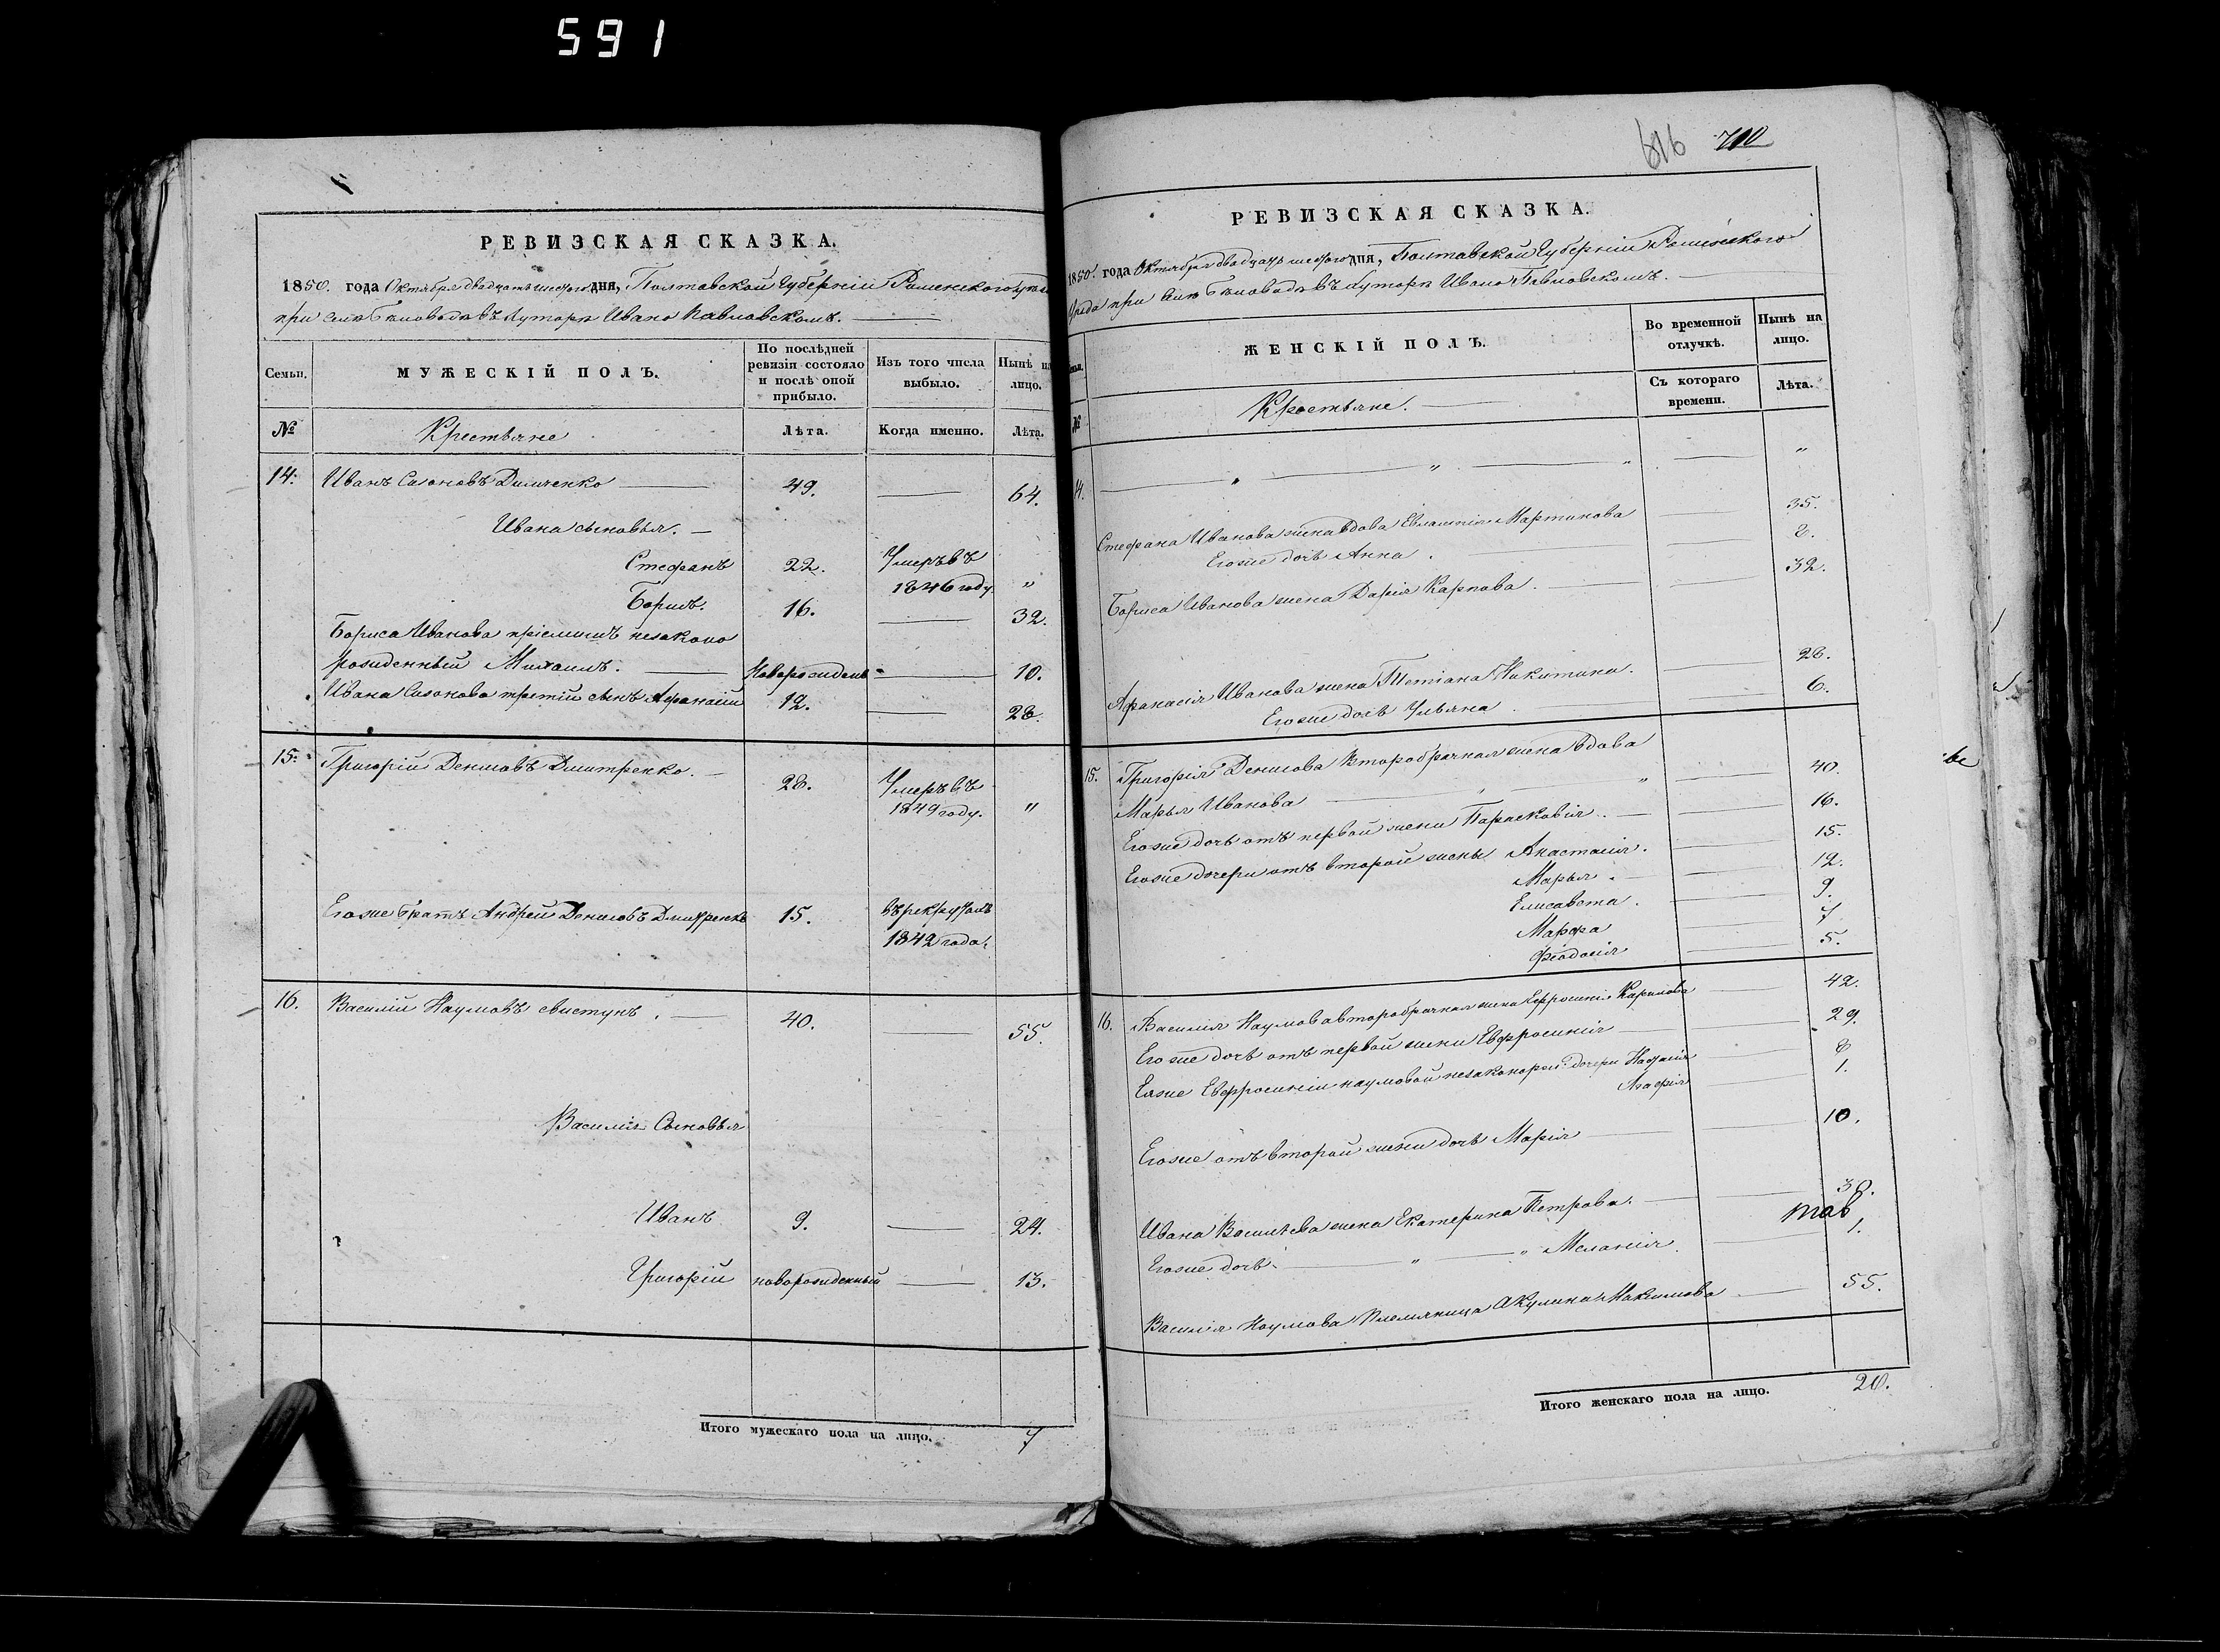 591
РЕВИЗСКАЯ СКАЗКА.
1850. года Октября двадцать шестого дня, Полтавской Губерніи Роменского уѣзда
при селѣ Бѣловодѣ въ Хуторѣ Ивано Павловскомъ.
Семьи.
МУЖЕСКІЙ ПОЛЪ.
По послѣдней ревизіи состояло и послѣ оной прибыло.
Изъ того числа выбыло.
Нынѣ на лицо.
№
Крестьяне
Лѣта.
Когда именно.
Лѣта.
14. Иванъ Сазоновъ 49. 64.
Ивана сыновья.
Стефанъ 22. Умеръ въ 1846 году "
Борисъ. 16. 32.
Бориса Иванова пріемишъ незаконо
рожденный Михаилъ. Новорожденъ 10.
Ивана Сазонова третій сынъ Афанасій 12. 28.
15. Григорій Денисовъ Дмитренко. 28. Умеръ въ 1849 году. "
Его же братъ Андрей Денисовъ Дмитренко 15. въ рекрутахъ 1842 года.
16. Василій Наумовъ свистунъ. 40. 55.
Василія Сыновья
Иванъ 9. 24.
Григорій новорожденный 13.
Итого мужескаго пола на лицо. 7
616 710
РЕВИЗСКАЯ СКАЗКА.
1850. года Октября двадцать шестого дня, Полтавской Губерніи Роменского
Уѣзда при селѣ Бѣловодѣ въ Хуторѣ Ивано Павловскомъ.
ЖЕНСКІЙ ПОЛЪ.
Во временной отлучкѣ.
Нынѣ на лицо.
№
Крестьяне.
Съ котораго времени.
Лѣта.
14. " " " "
Стефана Иванова жена вдова Евлампія Мартинова 35.
Его же дочь Анна. 8.
Бориса Иванова жена Дарія Карпова. 32.
Афанасія Иванова жена Тетіана Никитина. 28.
Его же дочь Ульяна 6.
15. Григорія Денисова второбрачная жена вдова
Марья Иванова " 40.
Его же дочь отъ первой жени Парасковія. 16.
Его же дочери отъ второй жены Анастасія. 15.
Марья. 12.
Елисавета. 9.
Марфа 7
Феодосія 5.
16. Василія Наумова второбрачная жена Ефросинія 42.
Его же дочь отъ первой жени Евфросинія 29.
Ея же Евфросиніи наумовой незаконорож: дочери 8
Агафія 1.
Его же отъ второй жени дочь Марія 10.
Ивана Василѣева жена Екатерина Петрова. 30.
Его же дочь " " Меланія 1.
Василія Наумова Племянница Акулина Максимова 55.
Итого женскаго пола на лицо. 20.